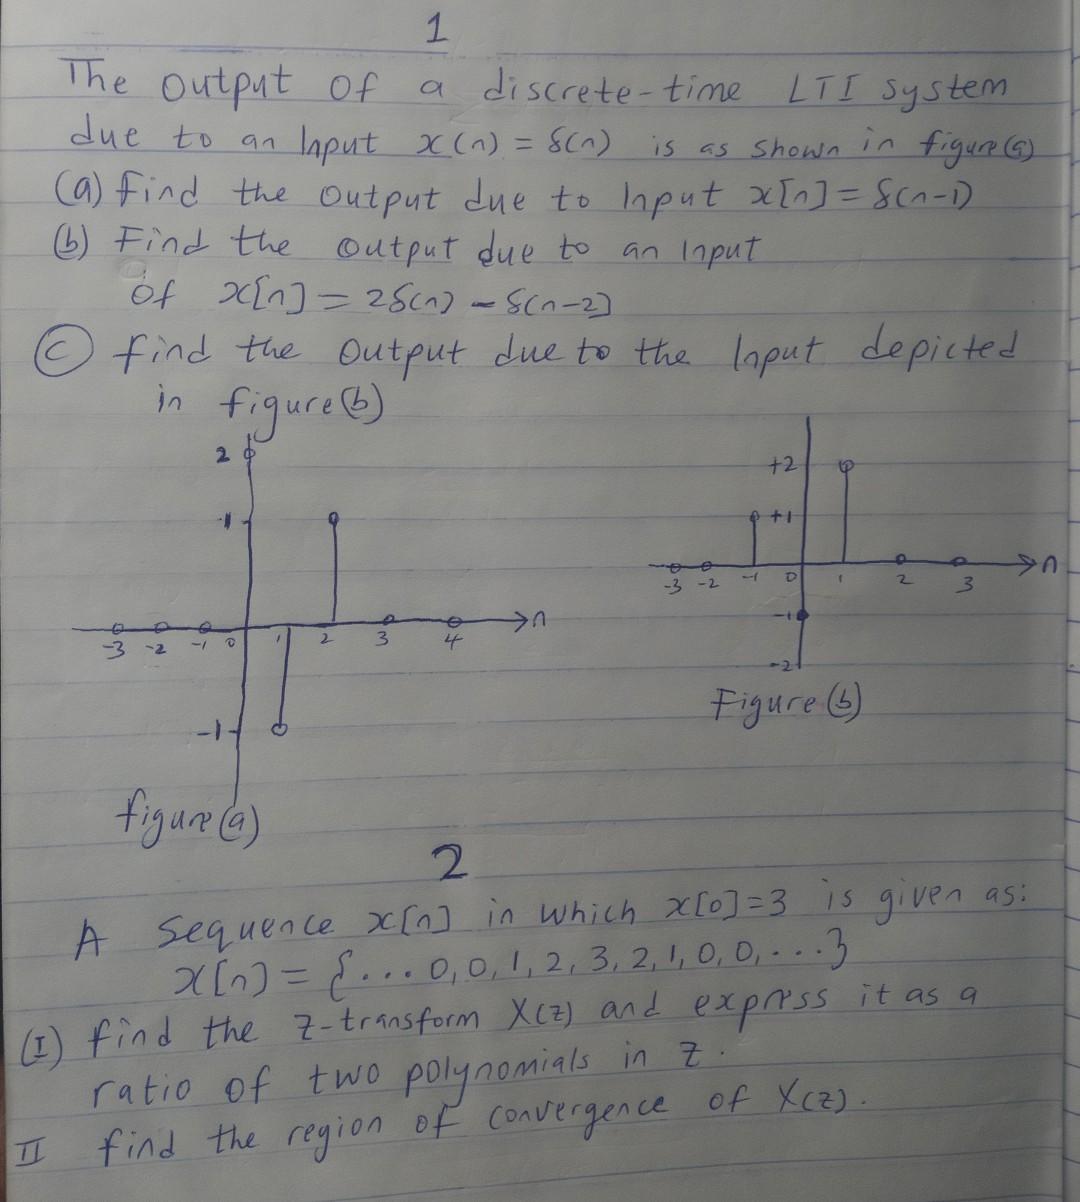 1
The output of a discrete-time LTI system
due to an Input x(n) = δ(n) is as shown in figure(a)
(a) find the output due to Input x[n] = δ(n-1)
(b) Find the output due to an Input
of x[n] = 2δ(n) - δ(n-2]
(c) find the output due to the Input depicted
in figure(b)
2
1
-3 -2 -1 0 1 2 3 4 n
-1
figure(a)
+2
+1
-3 -2 -1 0 1 2 3 n
-1
-2
Figure(b)
2
A Sequence x[n] in which x[0]=3 is given as:
x[n) = {... 0,0,1,2,3,2,1,0,0,...}
(I) find the z-transform X(z) and express it as a
ratio of two polynomials in z.
II find the region of convergence of X(z).